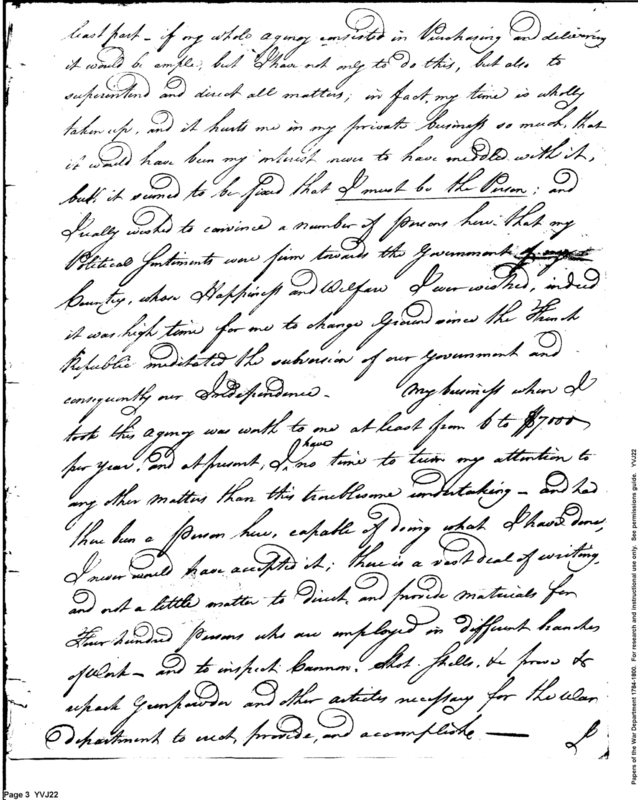 least part - if my whole agency consisted in Purchasing and delivering
it would be ample, but I have not only to do this, but also to
superintend and direct all matters; in fact, my time is wholly
taken up, and it hurts me in my private business so much, that
it would have been my interest never to have meddled with it,
but it seemed to be fixed that I must be the Person; and
I really wished to convince a number of persons here that my
Political Sentiments were firm towards the Government of my
Country, whose Happiness and Welfare I ever wished, indeed
it was high time for me to change Ground since the French
Republic meditated the subversion of our Government and
consequently our Independence - My business when I
took this agency was worth to one at least from 6 to $7000
per year, and at present, I have no time to turn my attention to
any other matters than this troublesome undertaking - and had
there been a person here, capable of doing what I have done,
I never would have accepted it; there is a vast deal of writing,
and not a little matter to direct and provide materials for
Four hundred persons who are employed in different branches
of Work - and to inspect Cannon, Shot, Shells, &c prove &
repack Gunpowder and other articles necessary for the War
department to erect, provide, and accomplish. —
Page 3 YVJ22
Papers of the War Department 1784-1800. For research and instructional use only. See permissions guide. YVJ22